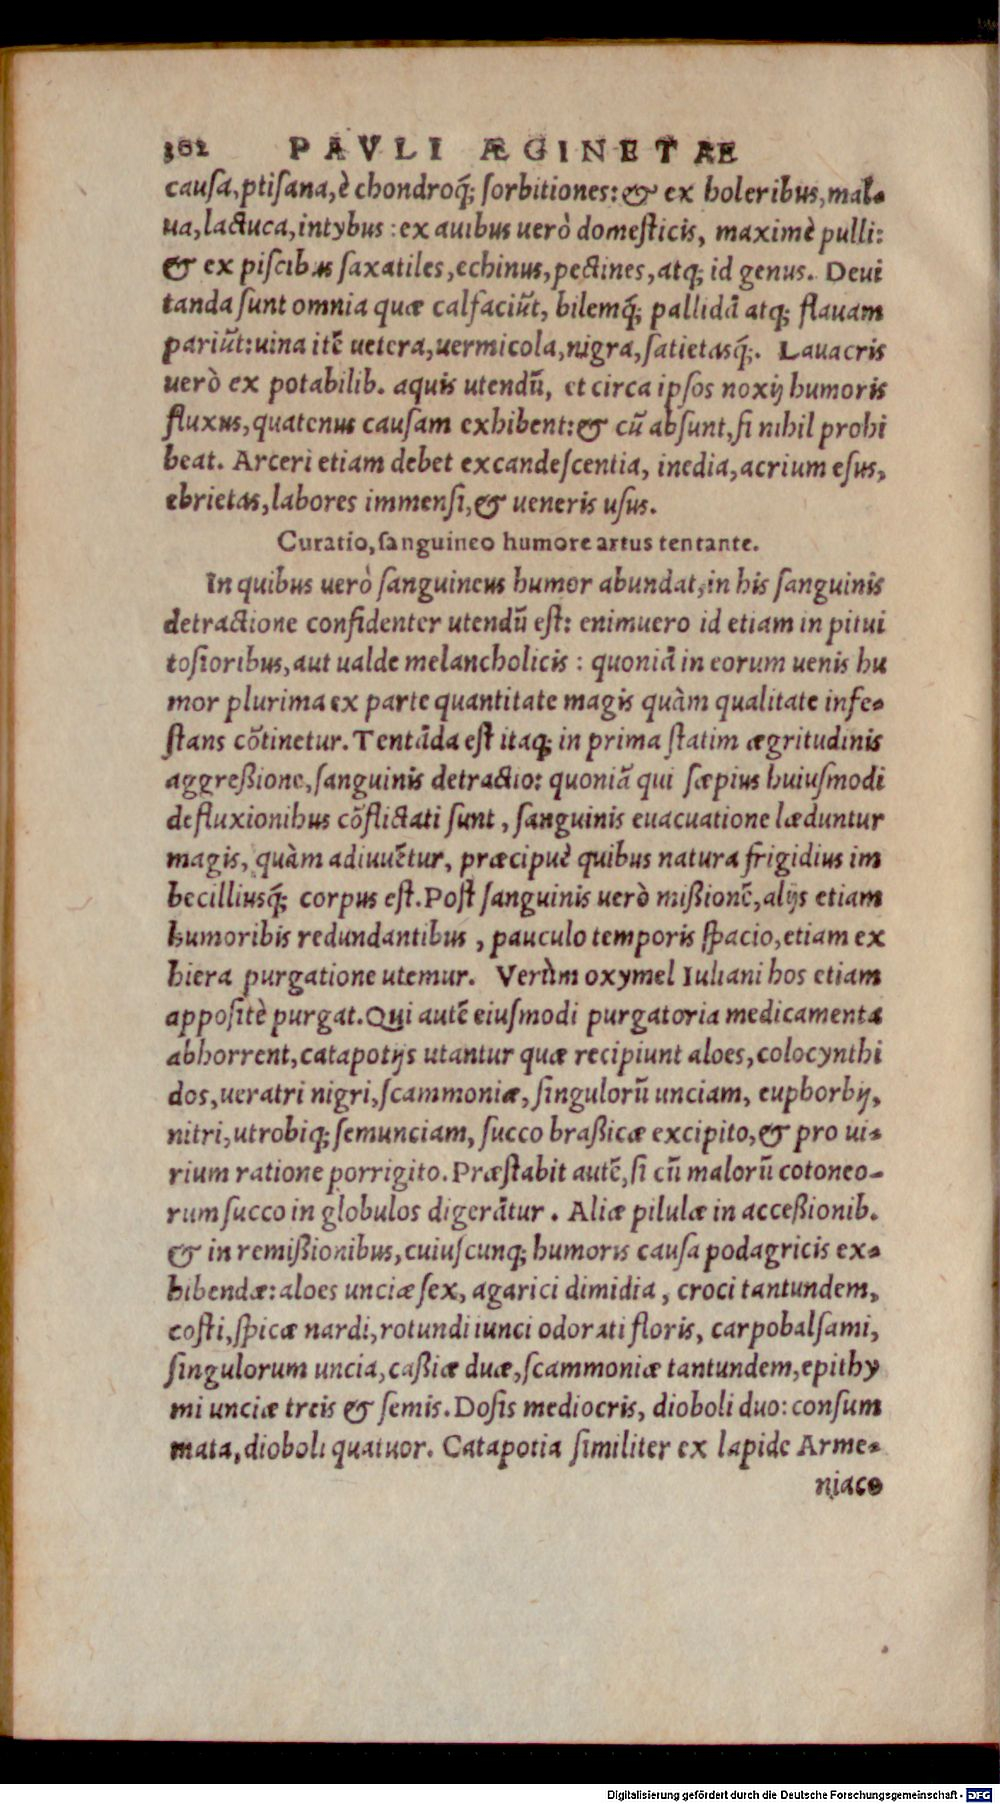 362 PAVLI ÆGINETAE
causa, ptisana, è chondroq́; sorbitiones: & ex holeribus, mal-
ua, lactuca, intybus : ex auibus uerò domesticis, maximè pulli:
& ex piscibus saxatiles, echinus, pectines, atq; id genus. Deui
tanda sunt omnia quæ calfaciũt, bilemq́; pallidã atq; flauam
pariũt: uina itẽ uetera, uermicola, nigra, satietasq́;. Lauacris
uerò ex potabilib. aquis utendũ, et circa ipsos noxij humoris
fluxus, quatenus causam exhibent: & cũ absunt, si nihil prohi
beat. Arceri etiam debet excandescentia, inedia, acrium esus,
ebrietas, labores immensi, & ueneris usus.
Curatio, sanguineo humore artus tentante.
In quibus uerò sanguineus humor abundat, in his sanguinis
detractione confidenter utendũ est: enimuero id etiam in pitui
tosioribus, aut ualde melancholicis : quoniã in eorum uenis hu
mor plurima ex parte quantitate magis quàm qualitate infe-
stans cõtinetur. Tentãda est itaq; in prima statim ægritudinis
aggreßione, sanguinis detractio: quoniã qui sæpius huiusmodi
defluxionibus cõflictati sunt, sanguinis euacuatione læduntur
magis, quàm adiuuẽtur, præcipuè quibus natura frigidius im
becilliusq́; corpus est. Post sanguinis uerò mißionẽ, alijs etiam
humoribis redundantibus, pauculo temporis spacio, etiam ex
hiera purgatione utemur. Verùm oxymel Iuliani hos etiam
appositè purgat. Qui autẽ eiusmodi purgatoria medicamenta
abhorrent, catapotijs utantur quæ recipiunt aloes, colocynthi
dos, ueratri nigri, scammoniæ, singulorũ unciam, euphorbij,
nitri, utrobiq; semunciam, succo braßicæ excipito, & pro ui-
rium ratione porrigito. Præstabit autẽ, si cũ malorũ cotoneo-
rum succo in globulos digerãtur. Aliæ pilulæ in acceßionib.
& in remißionibus, cuiuscunq; humoris causa podagricis ex-
hibendæ: aloes unciæ sex, agarici dimidia, croci tantundem,
costi, spicæ nardi, rotundi iunci odorati floris, carpobalsami,
singulorum uncia, caßiæ duæ, scammoniæ tantundem, epithy
mi unciæ treis & semis. Dosis mediocris, dioboli duo: consum
mata, dioboli quatuor. Catapotia similiter ex lapide Arme-
niaco
Digitalisierung gefördert durch die Deutsche Forschungsgemeinschaft - DFG